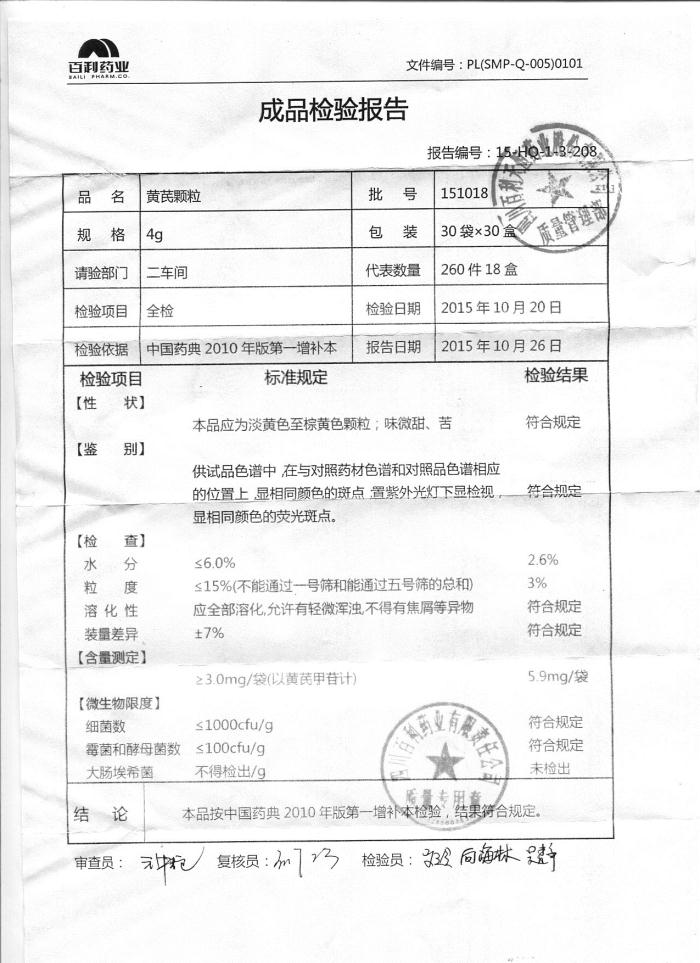 百利药业
BAILI PHARM.CO.
文件编号：PL(SMP-Q-005)0101
成品检验报告
报告编号：15-HQ-1-3-208
品 名 黄芪颗粒 批 号 151018
规 格 4g 包 装 30 袋×30 盒
质量管理部
请验部门 二车间 代表数量 260 件 18 盒
检验项目 全检 检验日期 2015 年 10 月 20 日
检验依据 中国药典 2010 年版第一增补本 报告日期 2015 年 10 月 26 日
检验项目 标准规定 检验结果
【性 状】
本品应为淡黄色至棕黄色颗粒；味微甜、苦 符合规定
【鉴 别】
供试品色谱中,在与对照药材色谱和对照品色谱相应
的位置上,显相同颜色的斑点,置紫外光灯下显检视, 符合规定
显相同颜色的荧光斑点。
【检 查】
水 分 ≤6.0% 2.6%
粒 度 ≤15%(不能通过一号筛和能通过五号筛的总和) 3%
溶 化 性 应全部溶化,允许有轻微浑浊,不得有焦屑等异物 符合规定
装量差异 ±7% 符合规定
【含量测定】
≥3.0mg/袋(以黄芪甲苷计) 5.9mg/袋
【微生物限度】
细菌数 ≤1000cfu/g 符合规定
霉菌和酵母菌数 ≤100cfu/g 符合规定
大肠埃希菌 不得检出/g 未检出
四川百利药业有限责任公司
质量专用章
结 论 本品按中国药典 2010 年版第一增补本检验，结果符合规定。
审查员： 复核员： 检验员： 向海林